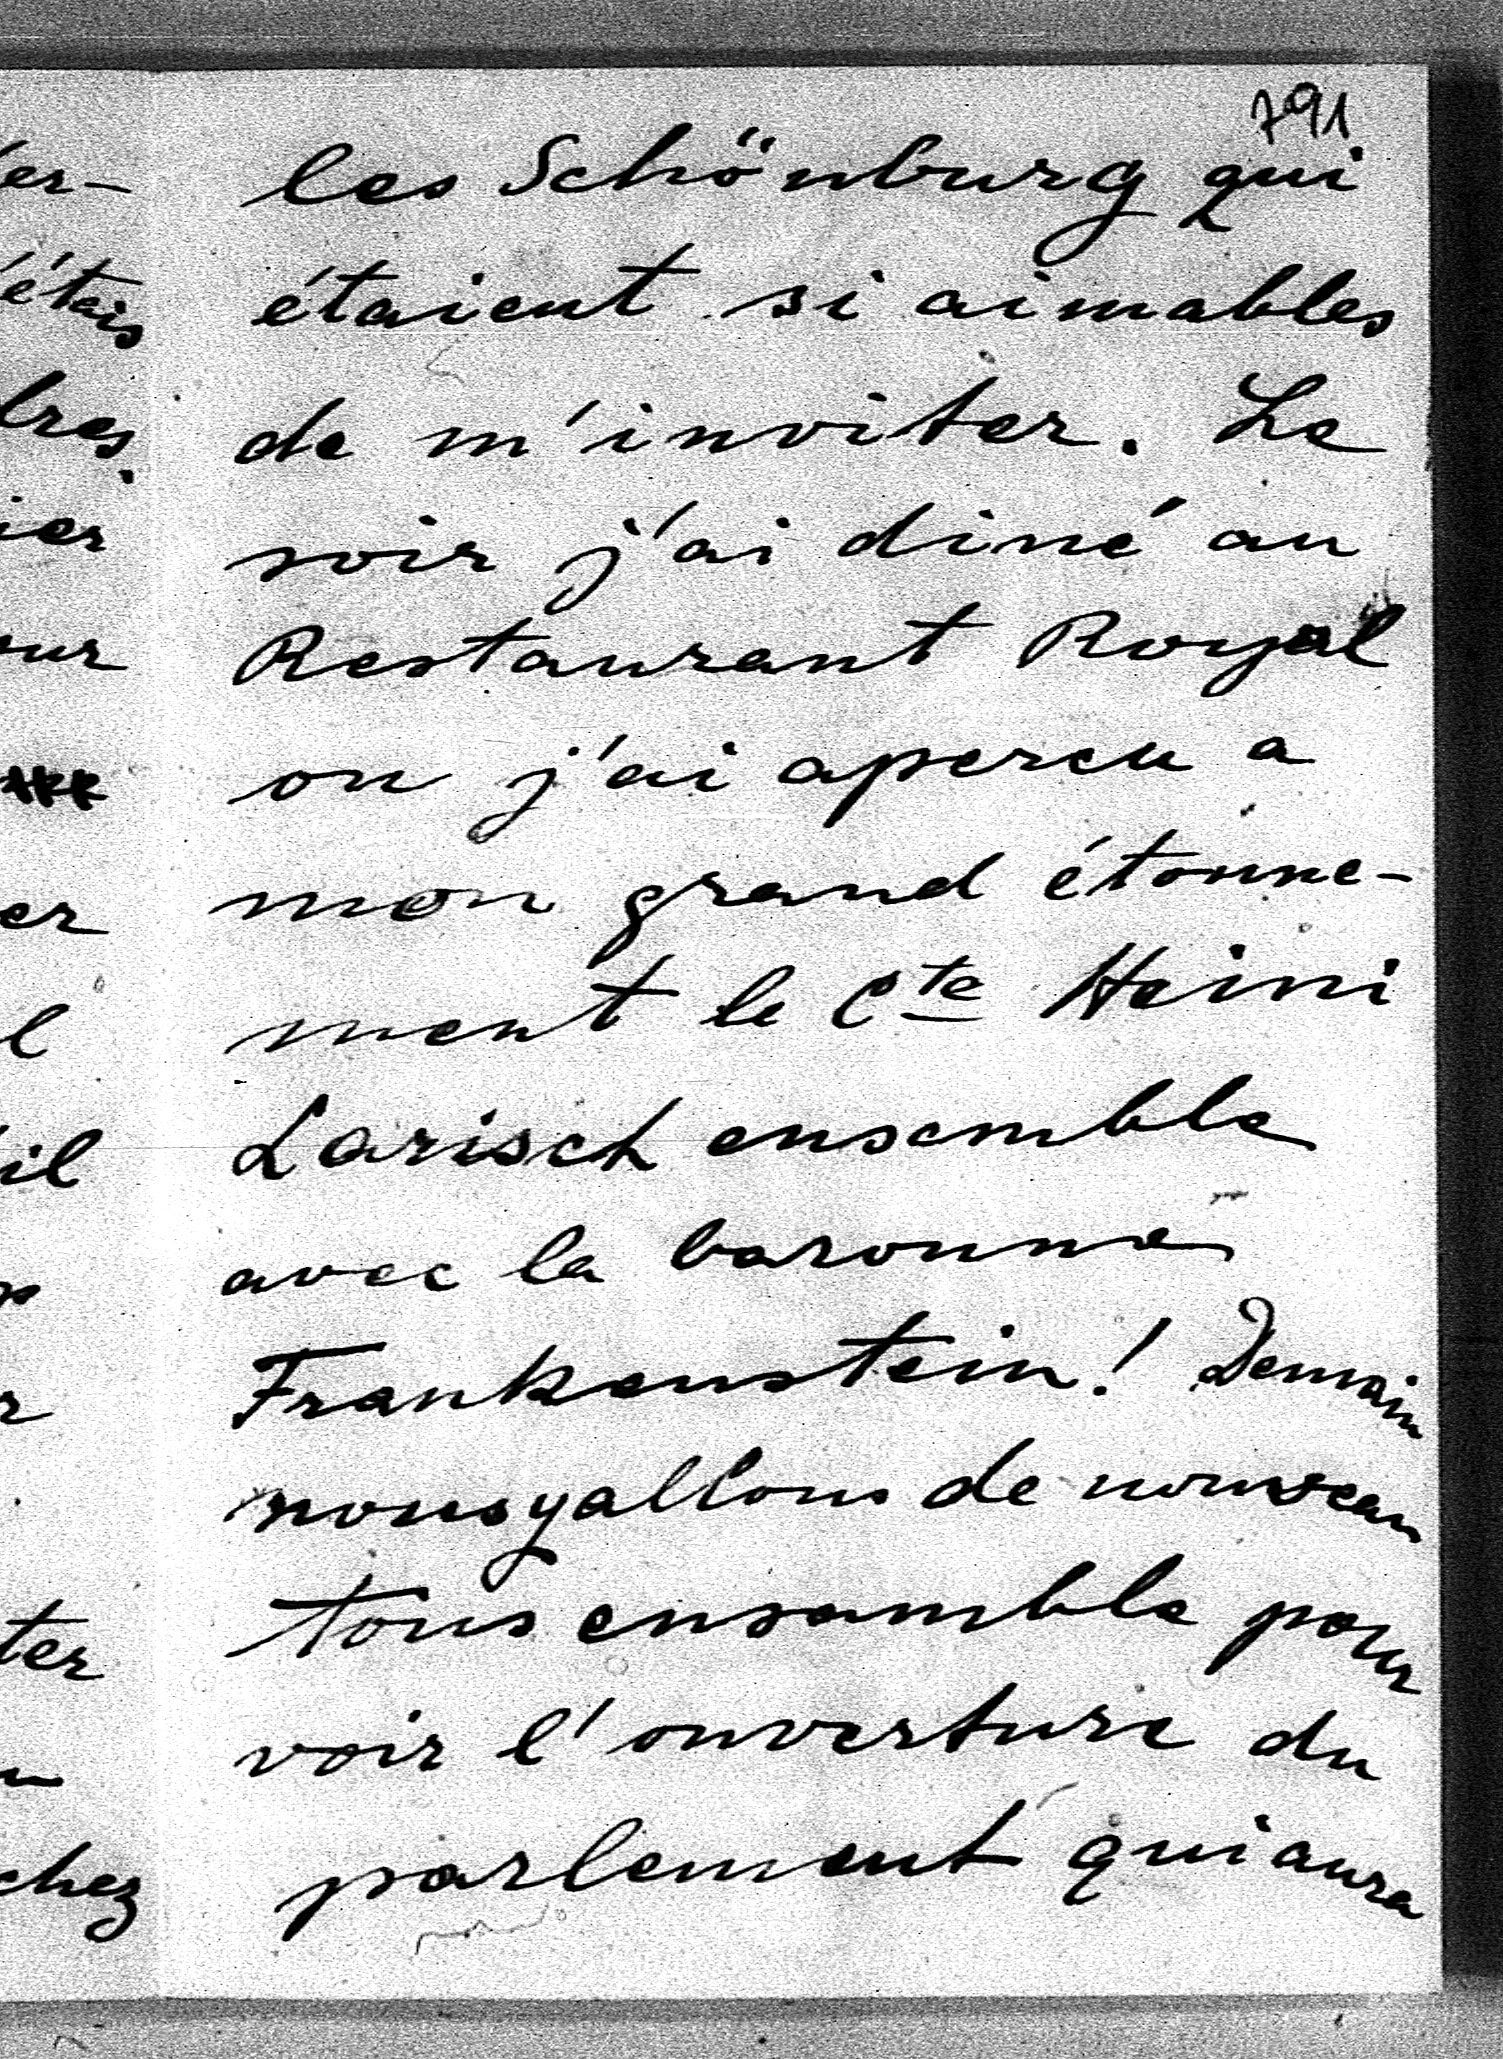 791
les Schönburg qui
étaient si aimables
de m'inviter. Le
soir j'ai diné au
Restaurant Royal
ou j'ai apercu a
mon grand étonne-
ment le Cte Heini
Larisch ensemble
avec la baronne
Frankenstein! Demain
nous y allons de nouveau
tous ensemble pour
voir l'ouverture du
parlement qui aura
er-
étais
bres.
ier
our
er
l
il
r
ter
chez